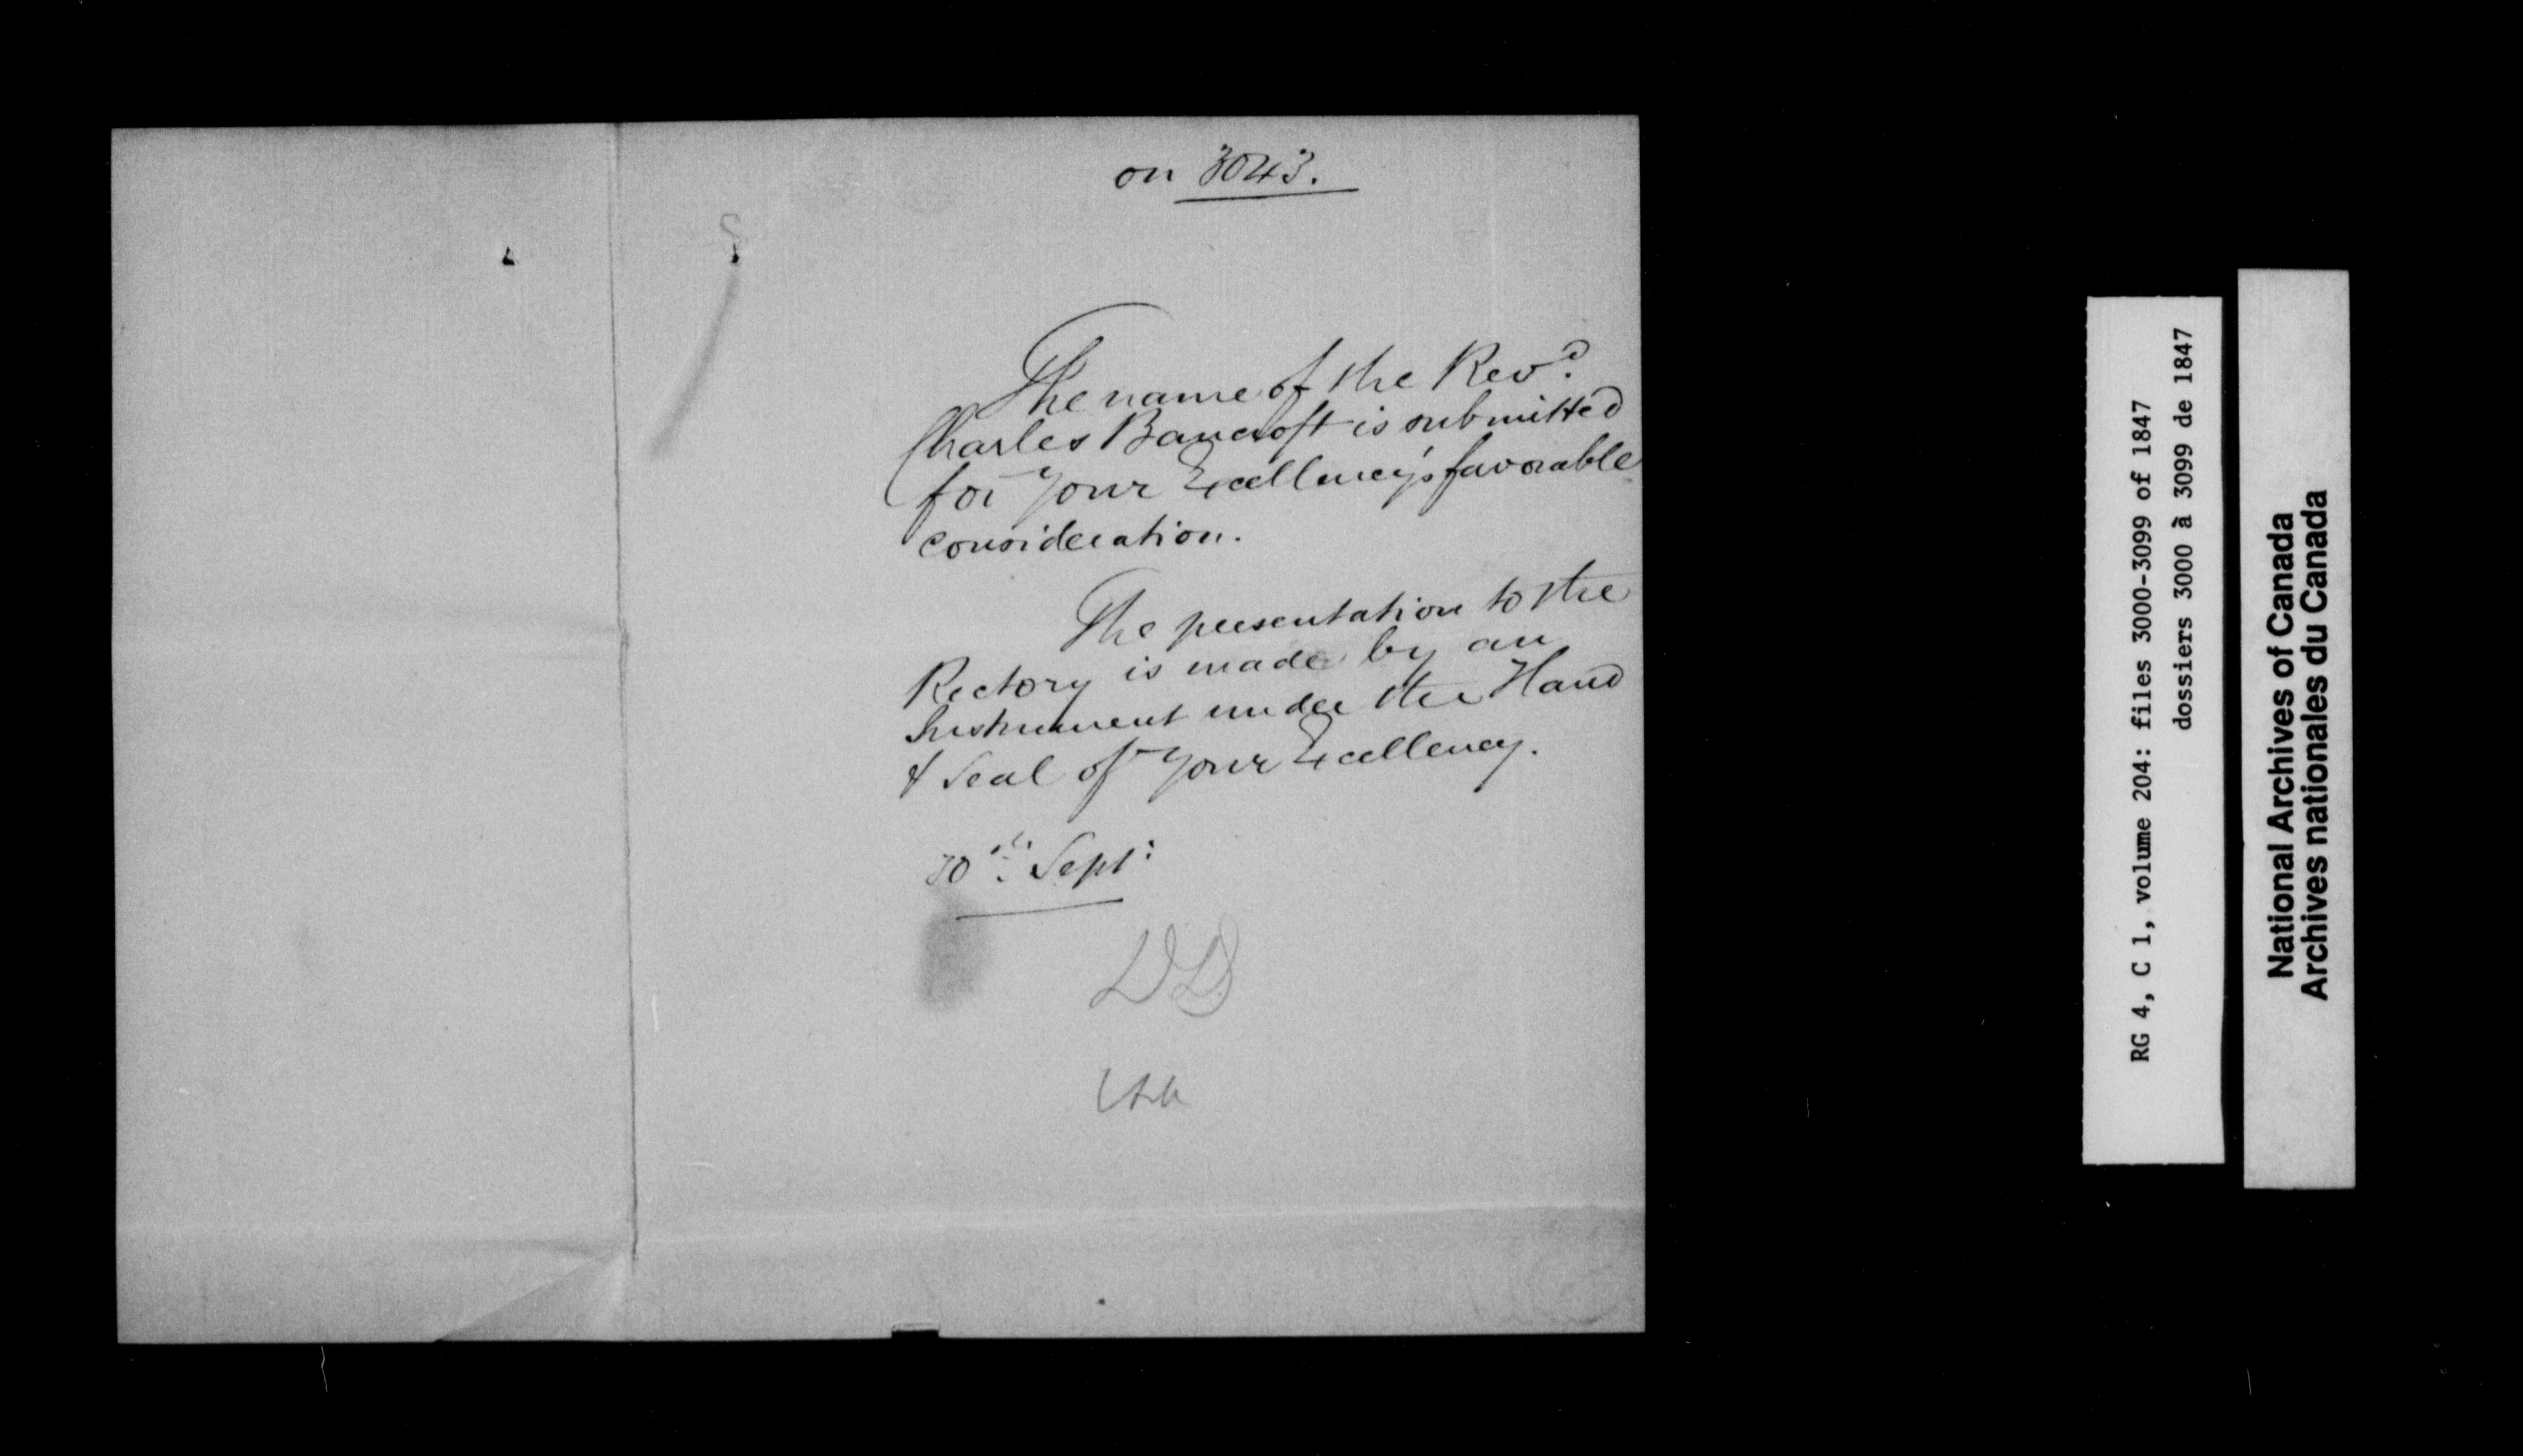 on 3043.
The name of the Revd.
Charles Bancroft is submitted
for Your Excellency's favorable
consideration.
The presentation to the
Rectory is made by an
Instrument under the Hand
& Seal of Your Excellency.
30th Sept:
DD
RG 4, C 1, volume 204: files 3000-3099 of 1847
dossiers 3000 à 3099 de 1847
National Archives of Canada
Archives nationales du Canada